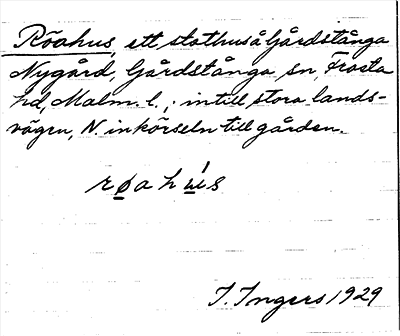 Röahus, ett stathus å Gårdstånga
Nygård, Gårdstånga sn, Frosta
hd, Malm. l.; intill stora lands-
vägen, N. inkörseln till gården.
røahús
I. Ingers 1929